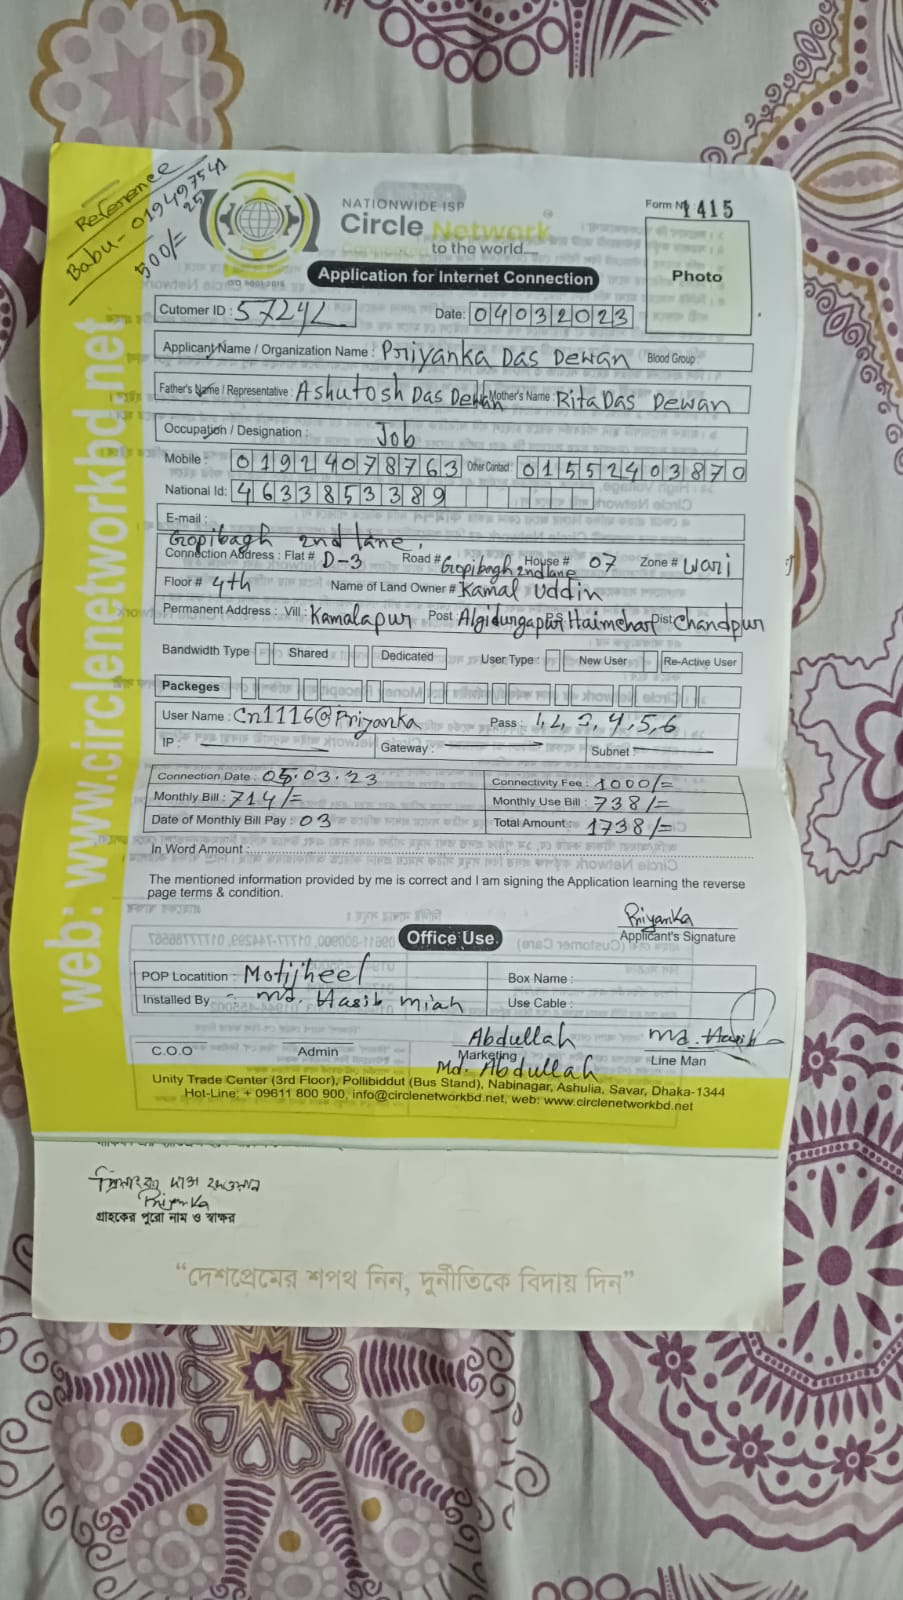 Reference
Babu- 019497541
25
500/=
NATIONWIDE ISP
Circle Network
to the world....
ISO 9001:2015
Form No 1415
Photo
Application for Internet Connection
Cutomer ID :
Date: 04032023
Applicant Name / Organization Name : Priyanka Das Dewan Blood Group :
Father's Name / Representative : Ashutosh Das Dewan Mother's Name : Rita Das Dewan
Occupation / Designation : Job
Mobile : 01924078763 Other Contact : 01552403870
National Id: 4633853389
E-mail :
Gopibagh 2nd lane,
Connection Address : Flat # D-3 Road # Gopibagh 2nd lane House # 07 Zone # Wari
Floor # 4th Name of Land Owner # Kamal Uddin
Permanent Address : Vill : Kamalapur Post : Algidurgapur PS: Haimchar Dist: Chandpur
Bandwidth Type Shared Dedicated User Type : New User Re-Active User
Packeges
User Name : Cn1116@Priyanka Pass : 1,2,3,4,5,6
IP : Gateway : Subnet :
Connection Date : 05.03.23 Connectivity Fee : 1000/=
Monthly Bill : 714/= Monthly Use Bill : 738/=
Date of Monthly Bill Pay : 03 Total Amount : 1738/=
In Word Amount :
The mentioned information provided by me is correct and I am signing the Application learning the reverse
page terms & condition.
Priyanka
Applicant's Signature
Office Use.
POP Locatition : Motijheel Box Name :
Installed By : Md. Hasib Miah Use Cable :
Abdullah Md. Hasib
C.O.O Admin Marketing Line Man
Md. Abdullah
Unity Trade Center (3rd Floor), Pollibiddut (Bus Stand), Nabinagar, Ashulia, Savar, Dhaka-1344
Hot-Line: + 09611 800 900, info@circlenetworkbd.net, web: www.circlenetworkbd.net
web: www.circlenetworkbd.net
Priyanka
গ্রাহকের পুরো নাম ও স্বাক্ষর
“দেশপ্রেমের শপথ নিন, দুর্নীতিকে বিদায় দিন”